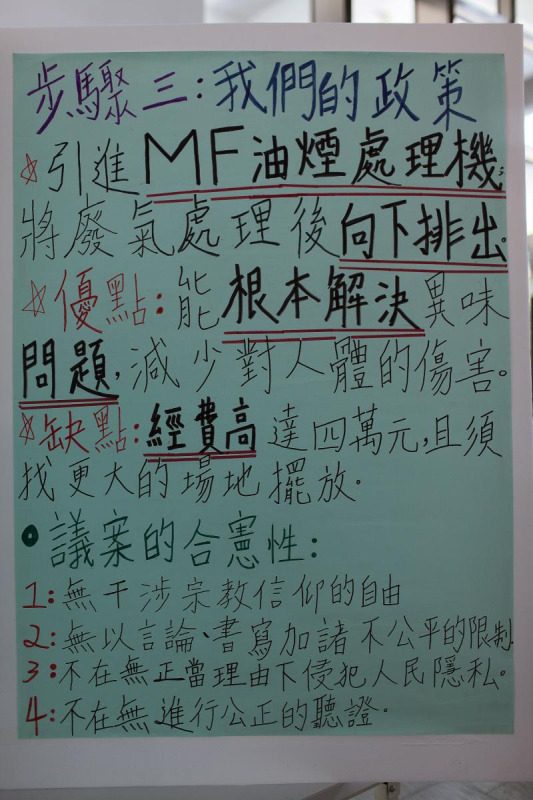 步驟三:我們的政策
☆引進MF油煙處理機,
將廢氣處理後向下排出。
☆優點:能根本解決異味
問題,減少對人體的傷害。
☆缺點:經費高達四萬元,且須
找更大的場地擺放。
•議案的合憲性:
1:無干涉宗教信仰的自由
2:無以言論、書寫加諸不公平的限制
3:不在無正當理由下侵犯人民隱私。
4:不在無進行公正的聽證。